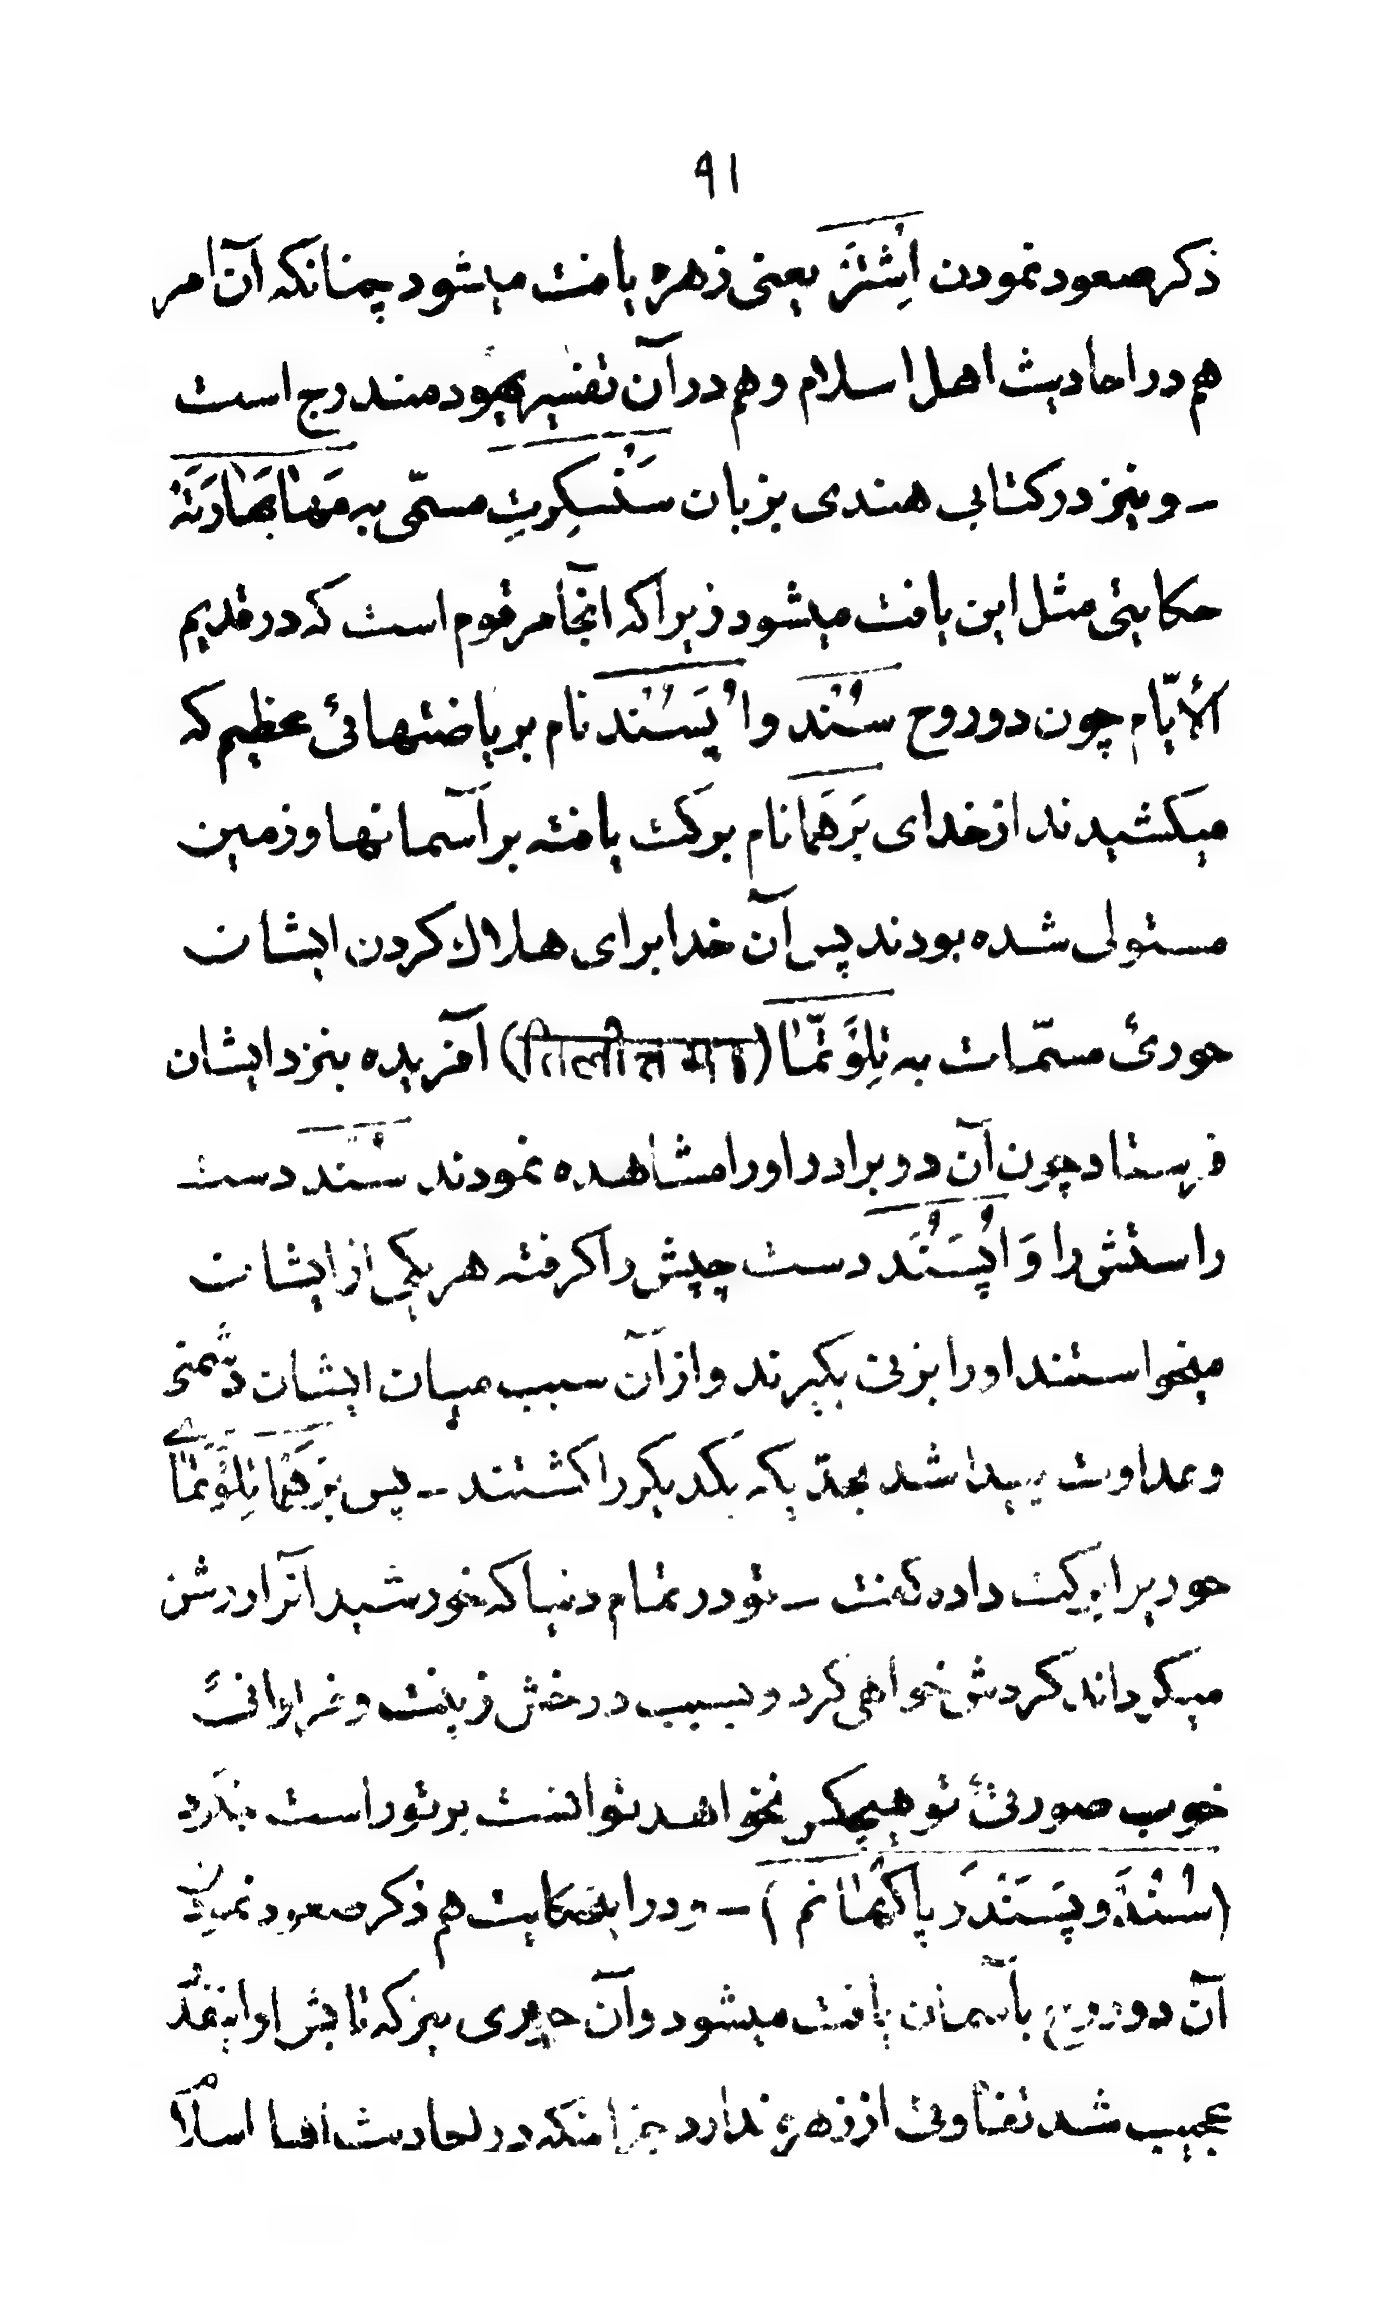 ۹۱
ذکر صعود نمودن اِشْتَرْ یعنی زهره یافت میشود چنانکه آن امر
هم در احادیث اهل اسلام و هم در آن تفسیر یهود مندرج است
ـ و نیز در کتابی هندی بزبان سَنْسِکِرِتِ مسمّی به مَهابَهارَتَه
حکایتی مثل این یافت میشود زیرا که انجا مرقوم است که در قدیم
الأیّام چون دو روح سُنْد و اُپَسُنْد نام بر یاضتهائی عظیم که
میکشیدند از خدای بَرَهَما نام برکت یافته بر آسمانها و زمین
مستولی شده بودند پس آن خدا برای هلاک کردن ایشان
حورئ مسمّات به تِلَوتَّما (तिलोत्तमा) آفریده بنزد ایشان
فرستاد چون آن دو برادر او را مشاهده نمودند سُنْد دست
راستش را وَ اُپَسُنْد دست چپش را گرفته هر یکی از ایشان
میخواستند او را بزنی بگیرند و از آن سبب میان ایشان دشمنی
و عداوت پیدا شد بحدّیکه یکدیگر را کشتند ـ پس بَرَهَما تِلَوتَمای
حور را برکت داده گفت ـ تو در تمام دنیا که خورشید آنرا روشن
میگرداند گردش خواهی کرد و بسبب درخش زینت و فراوانیٔ
خوب صورتیٔ تو هیچکس نخواهد توانست بر تو راست بنگرد
(سُنْدَ و پَسَنْدَر پاکھَیانم) ـ و در اینحکایت هم ذکر صعود نمودن
آن دو روح بآسمان یافت میشود و آن حوری نیز که تابش او اینقدر
عجیب شد تفاوتی از زهره ندارد جز اینکه در احادیث اهل اسلام